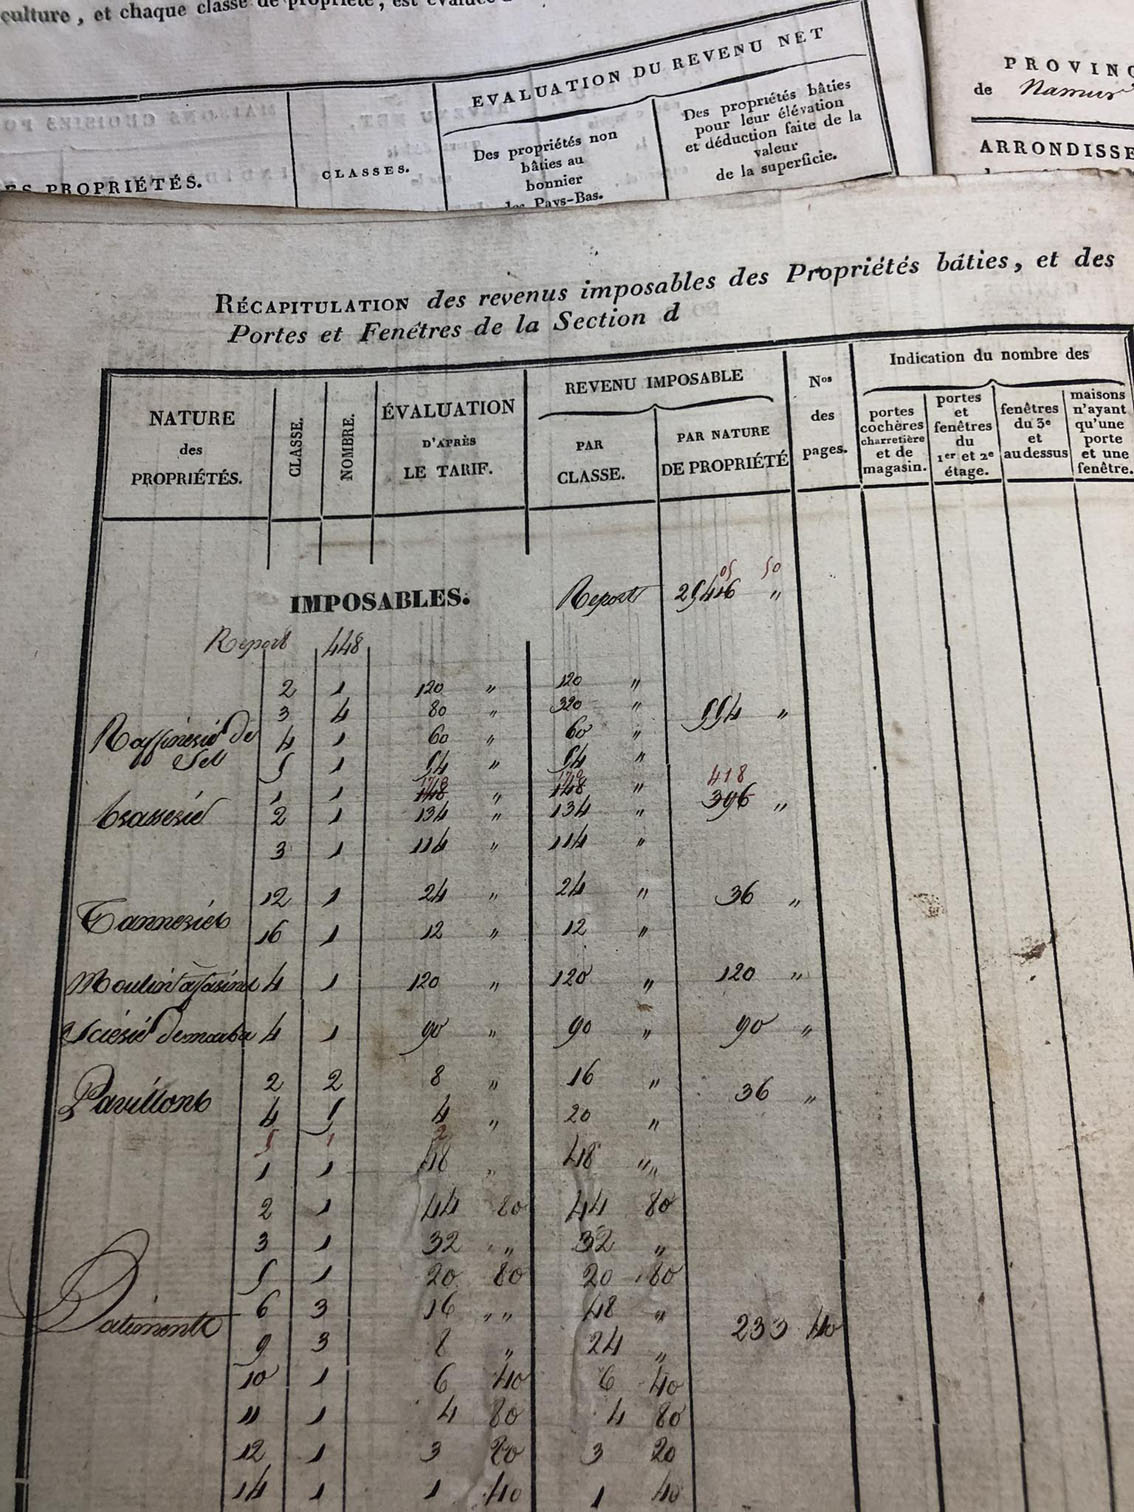 culture, et chaque classe de propriété, est évaluée
EVALUATION DU REVENU NET
ES PROPRIÉTÉS.
CLASSES.
Des propriétés non
bâties au
bonnier
des Pays-Bas.
Des propriétés bâties
pour leur élévation
et déduction faite de la
valeur
de la superficie.
PROVINC
de Namur
ARRONDISSE
RÉCAPITULATION des revenus imposables des Propriétés bâties, et des
Portes et Fenêtres de la Section d
NATURE
des
PROPRIÉTÉS.
CLASSE.
NOMBRE.
ÉVALUATION
D'APRÈS
LE TARIF.
REVENU IMPOSABLE
PAR
CLASSE.
PAR NATURE
DE PROPRIÉTÉ
Nos
des
pages.
Indication du nombre des
portes
cochères
charretière
et de
magasin.
portes
et
fenêtres
du
1er et 2e
étage.
fenêtres
du 3e
et
au dessus
maisons
n'ayant
qu'une
porte
et une
fenêtre.
05 50
IMPOSABLES. Report 29416 "
Report 448
2 1 120 " 120 "
3 4 80 " 320 " 554 "
Raffinerie de 4 1 60 " 60 "
Sel 5 1 54 " 54 "
170 170 418
1 1 148 " 148 " 396 "
brasserie 2 1 134 " 134 "
3 1 114 " 114 "
12 1 24 " 24 " 36 "
Tanneries 16 1 12 " 12 "
Moulin à farine 4 1 120 " 120 " 120 "
Scierie de marbre 4 1 90 " 90 " 90 "
2 2 8 " 16 " 36 "
Pavillons 4 5 4 " 20 "
5 1 2
1 1 48 " 48 "
2 1 44 80 44 80
3 1 32 " 32 "
5 1 20 80 20 80
Batiments 6 3 16 " 48 " 233 40
9 3 8 " 24 "
10 1 6 40 6 40
11 1 4 80 4 80
12 1 3 20 3 20
14 1 1 40 1 40